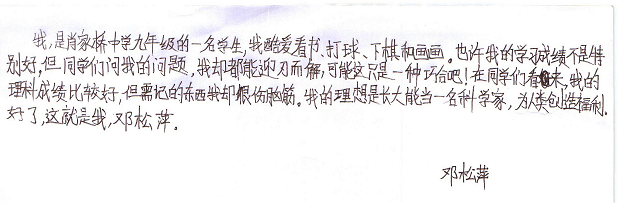 我,是肖家桥中学九年级的一名学生,我酷爱看书、打球、下棋和画画。也许我的学习成绩不是特
别好,但同学们问我的问题,我却都能迎刃而解,可能这只是一种巧合吧!在同学们看来,我的
理科成绩比较好,但需记的东西我却很伤脑筋。我的理想是长大能当一名科学家,为人类创造福利。
好了,这就是我,邓松萍。
邓松萍